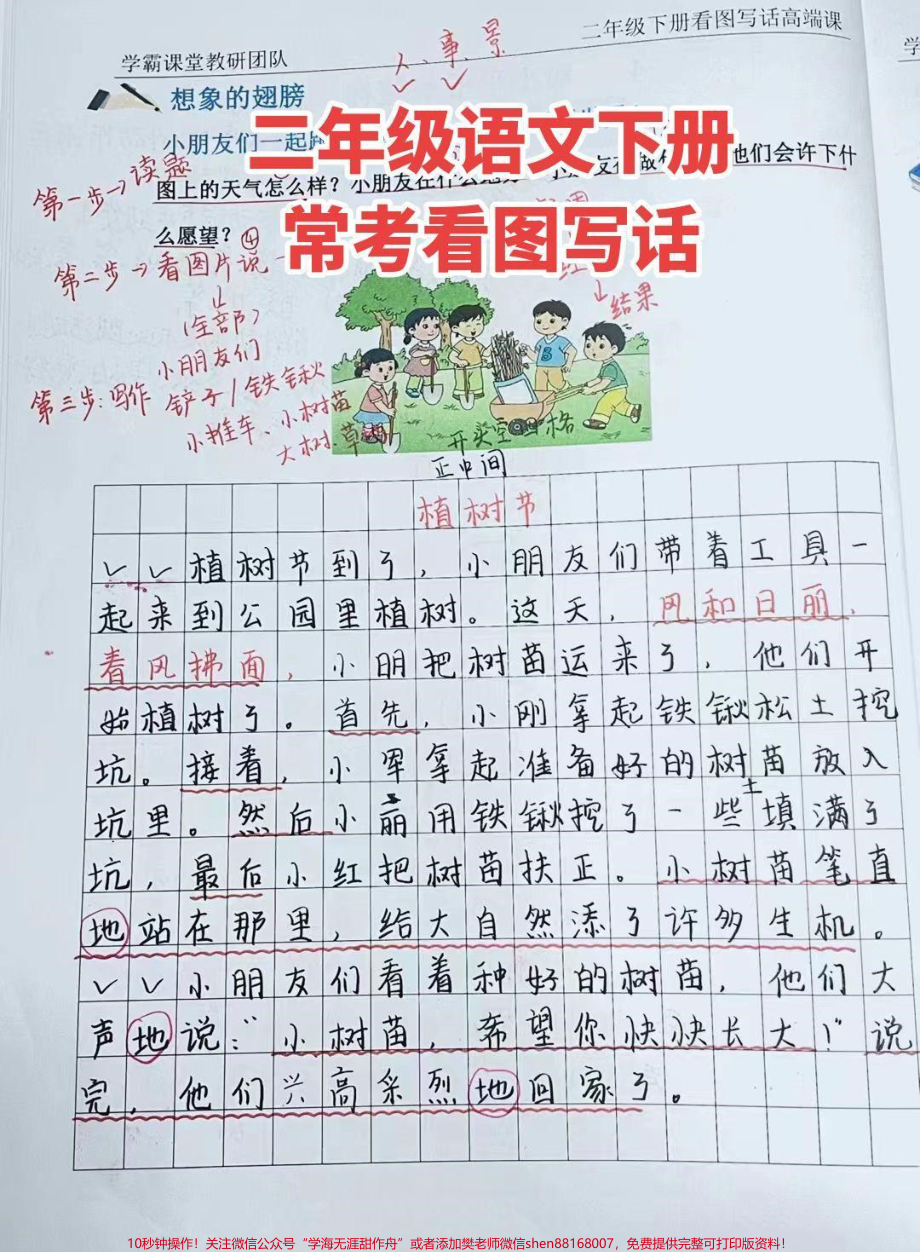 二年级下册看图写话高端课
学霸课堂教研团队
人、事、景
想象的翅膀
小朋友们一起
二年级语文下册
常考看图写话
第一步→读题
图上的天气怎么样？小朋友在什么地
他们会许下什
么愿望？④
第二步→看图片说一
（全部）
结果
小朋友们
第三步：写作
铲子/铁锹
小推车、小树苗
大树.草
开头空 格
正中间
植树节
植树节到了，小朋友们带着工具一
起来到公园里植树。这天，风和日丽，
春风拂面，小明把树苗运来了，他们开
始植树了。首先，小刚拿起铁锹松土挖
坑。接着，小军拿起准备好的树苗放入
坑里。然后小丽用铁锹挖了一些土填满了
坑，最后小红把树苗扶正。小树苗笔直
地站在那里，给大自然添了许多生机。
小朋友们看着种好的树苗，他们大
声地说：“小树苗，希望你快快长大！”说
完，他们兴高采烈地回家了。
10秒钟操作！关注微信公众号“学海无涯甜作舟”或者添加樊老师微信shen88168007，免费提供完整可打印版资料！